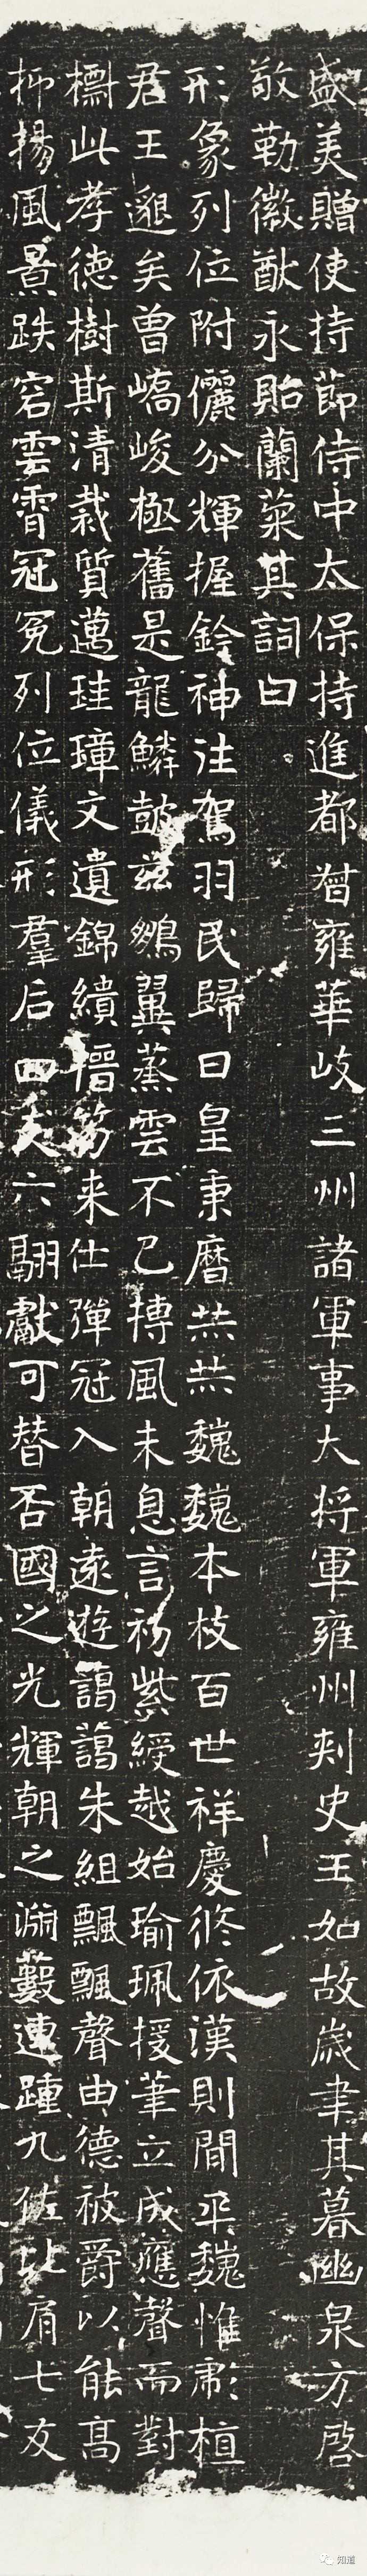 盛美贈使持節侍中太保持進都督雍華岐三州諸軍事大將軍雍州刾史王如故歲聿其暮幽泉方啓
敬勒徽猷永貽蘭菜其詞曰
形象列位附儷分輝握鈴神注駕羽民歸曰皇秉曆㷼㷼魏魏本枝百世祥慶攸依漢則間平魏惟彪植
君王邈矣曾嶠峻極舊是龍鱗鼓茲鵷翼蒸雲不已摶風未息言礿紫綬越始瑜珮援筆立成應聲而對
檦此孝德樹斯清裁質邁珪璋文遺錦繢搢笏来仕彈冠入朝遠遊藹藹朱組飄飄聲由德被爵以能高
抑揚風景跌宕雲霄冠冕列位儀形羣后四六騆獻可替否國之光輝朝之淵藪連踵九佐比肩七友
知道